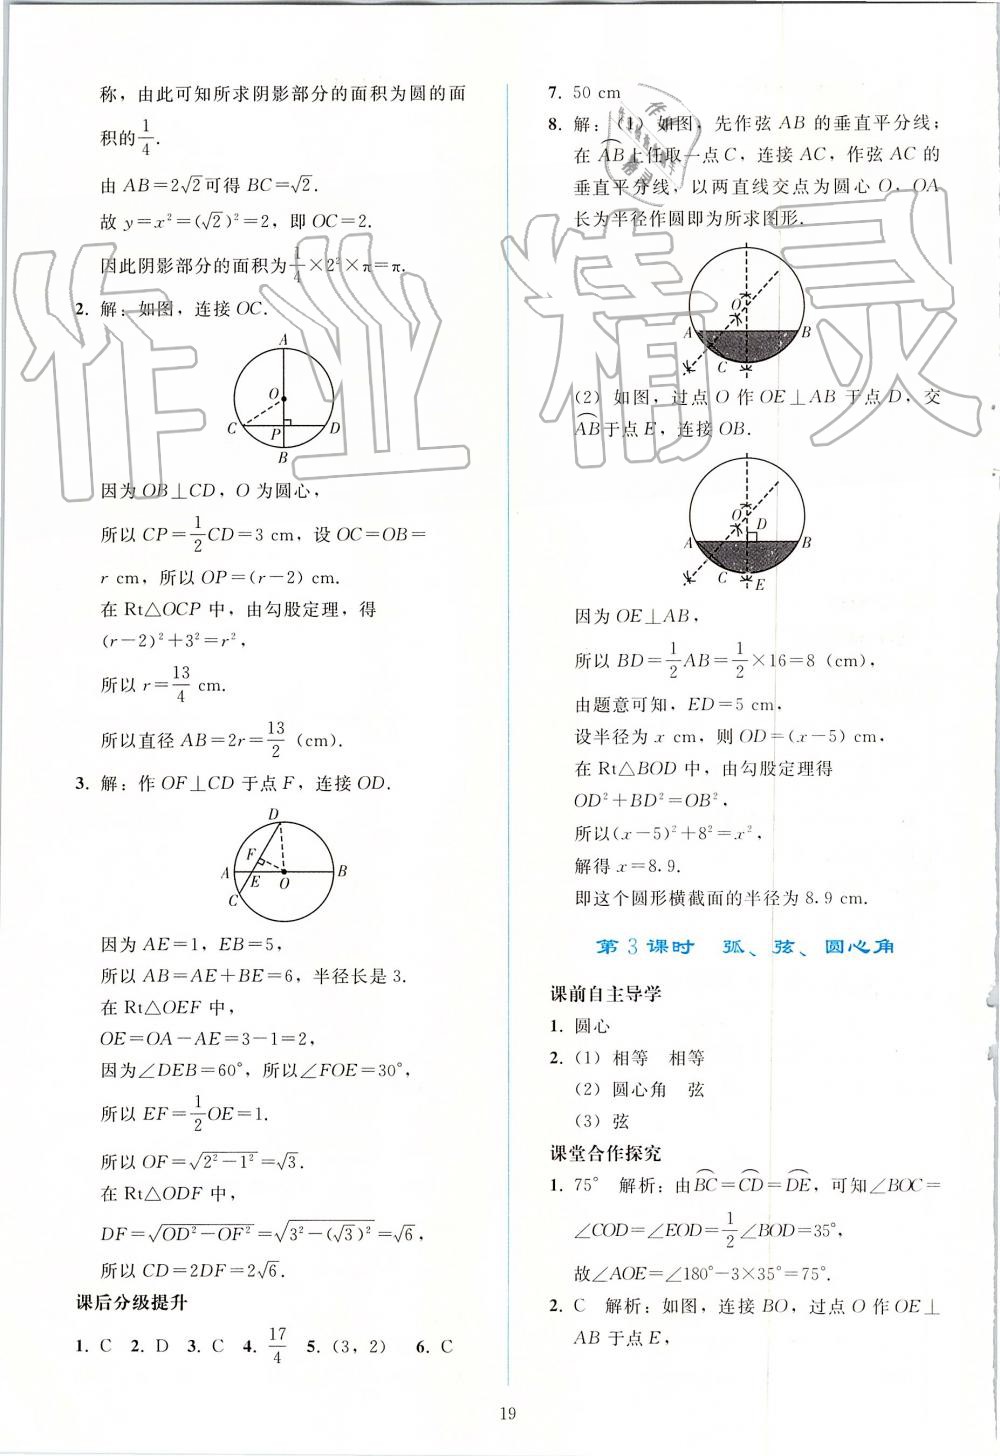 称，由此可知所求阴影部分的面积为圆的面
积的1/4.
由 AB=2√2可得 BC=√2.
故 y=x²=(√2)²=2，即 OC=2.
因此阴影部分的面积为1/4×2²×π=π.
2. 解：如图，连接 OC.
A
O
C
P
D
B
因为 OB⊥CD，O 为圆心，
所以 CP=1/2CD=3 cm，设 OC=OB=
r cm，所以 OP=(r-2) cm.
在 Rt△OCP 中，由勾股定理，得
(r-2)²+3²=r²，
所以 r=13/4 cm.
所以直径 AB=2r=13/2 (cm).
3. 解：作 OF⊥CD 于点 F，连接 OD.
D
F
A
E
O
B
C
因为 AE=1，EB=5，
所以 AB=AE+BE=6，半径长是 3.
在 Rt△OEF 中，
OE=OA-AE=3-1=2，
因为∠DEB=60°，所以∠FOE=30°，
所以 EF=1/2OE=1.
所以 OF=√(2²-1²)=√3.
在 Rt△ODF 中，
DF=√(OD²-OF²)=√(3²-(√3)²)=√6，
所以 CD=2DF=2√6.
课后分级提升
1. C 2. D 3. C 4. 17/4 5. (3，2) 6. C
7. 50 cm
8. 解：(1) 如图，先作弦 AB 的垂直平分线；
在 AB⌒上任取一点 C，连接 AC，作弦 AC 的
垂直平分线，以两直线交点为圆心 O，OA
长为半径作圆即为所求图形.
O
A
B
C
(2) 如图，过点 O 作 OE⊥AB 于点 D，交
AB⌒于点 E，连接 OB.
O
D
A
B
C
E
因为 OE⊥AB，
所以 BD=1/2AB=1/2×16=8 (cm)，
由题意可知，ED=5 cm，
设半径为 x cm，则 OD=(x-5) cm，
在 Rt△BOD 中，由勾股定理得
OD²+BD²=OB²，
所以(x-5)²+8²=x²，
解得 x=8.9.
即这个圆形横截面的半径为 8.9 cm.
第 3 课时 弧、弦、圆心角
课前自主导学
1. 圆心
2. (1) 相等 相等
(2) 圆心角 弦
(3) 弦
课堂合作探究
1. 75° 解析：由BC⌒=CD⌒=DE⌒，可知∠BOC=
∠COD=∠EOD=1/2∠BOD=35°，
故∠AOE=∠180°-3×35°=75°.
2. C 解析：如图，连接 BO，过点 O 作 OE⊥
AB 于点 E，
19
作业精灵